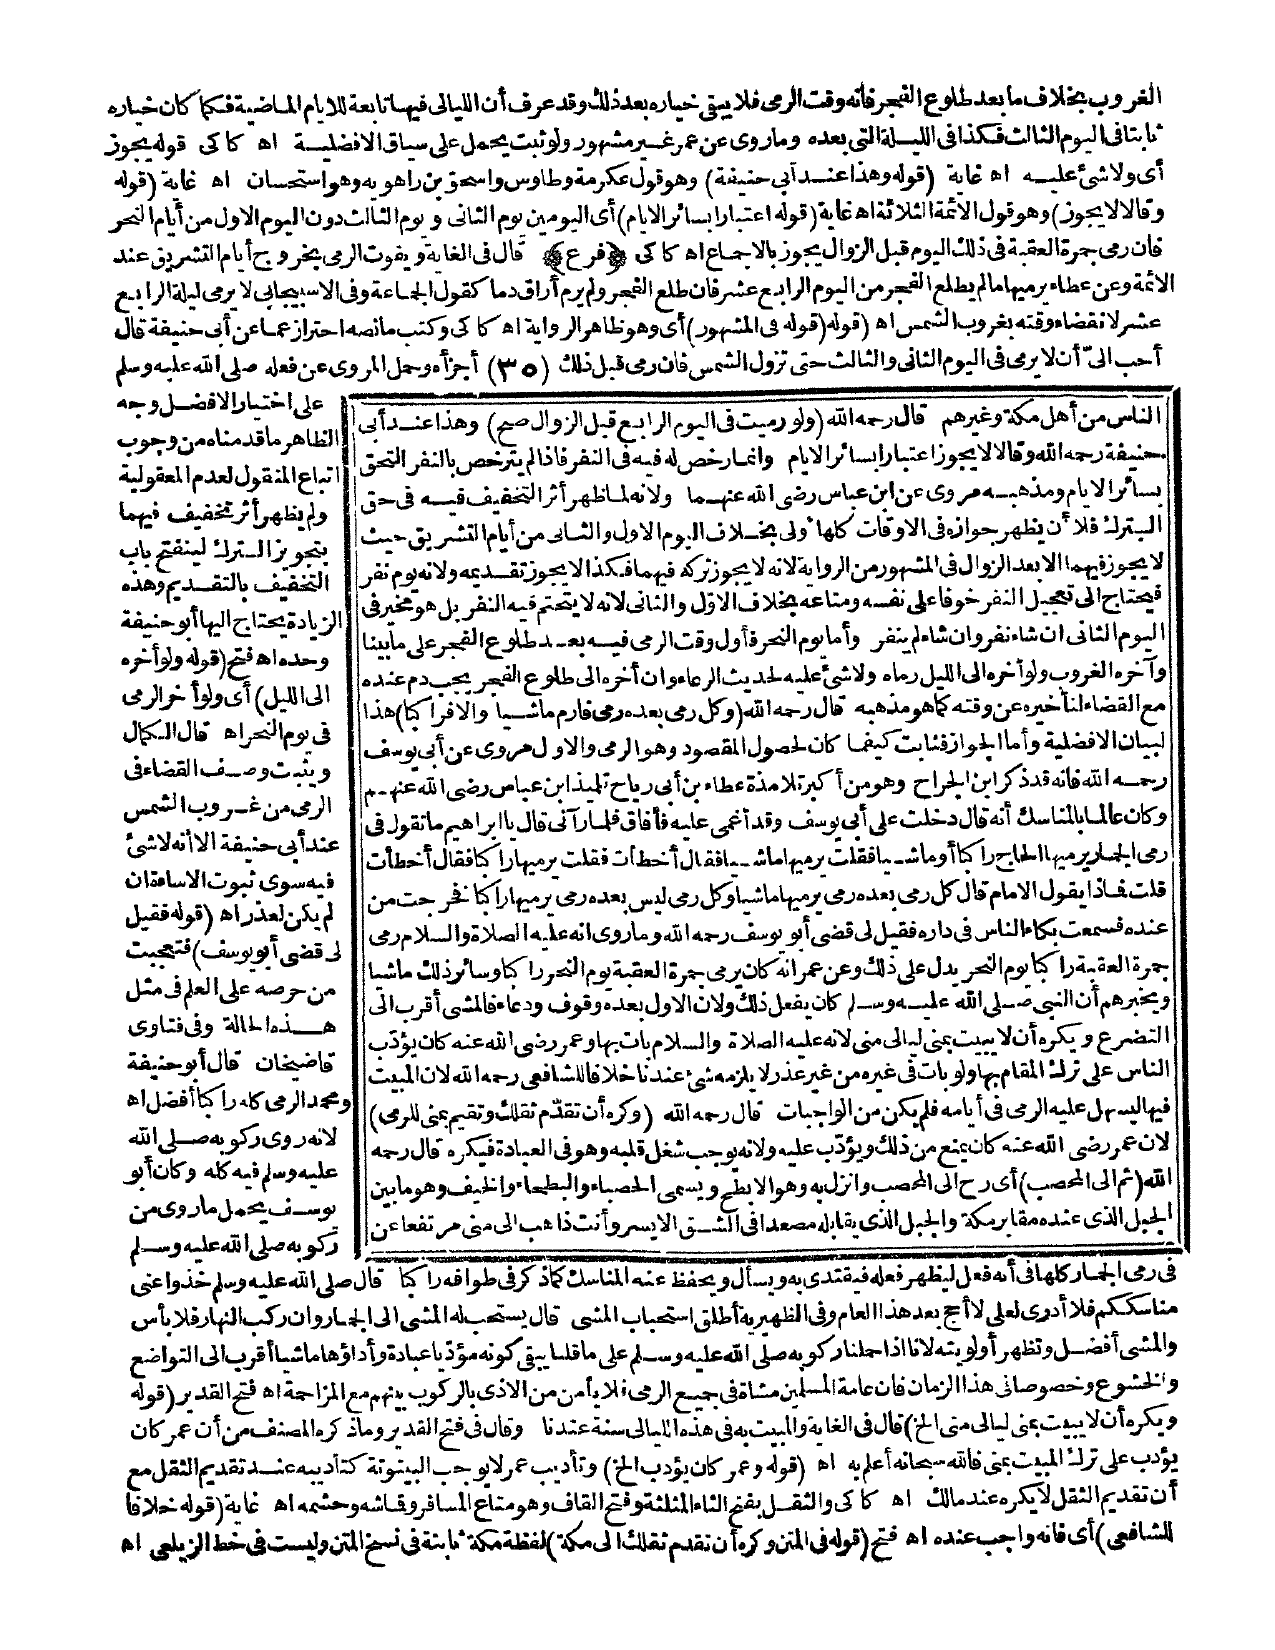 الغروب بخلاف ما بعد طلوع الفجر فانه وقت الرمى فلا يبقى خياره بعد ذلك وقد عرف أن الليالى فيها تابعة للايام الماضية فكما كان خياره
ثابتا فى اليوم الثالث فكذا فى الليلة التى بعده وما روى عن عمر غير مشهور ولو ثبت يحمل على سياق الافضلية اه كاكى قوله يجوز
أى ولا شئ عليه اه غاية (قوله وهذا عند أبى حنيفة) وهو قول عكرمة وطاوس واسحق بن راهويه وهو استحسان اه غاية (قوله
وقالا لا يجوز) وهو قول الائمة الثلاثة اه غاية (قوله اعتبارا بسائر الايام) أى اليومين يوم الثانى ويوم الثالث دون اليوم الاول من أيام النحر
فان رمى جمرة العقبة فى ذلك اليوم قبل الزوال يجوز بالاجماع اه كاكى ﴿فرع﴾ قال فى الغاية ويفوت الرمى بخروج أيام التشريق عند
الائمة وعن عطاء يرميها مالم يطلع الفجر من اليوم الرابع عشر فان طلع الفجر ولم يرم أراق دما كقول الجماعة وفى الاسبيجابى لا يرمى ليلة الرابع
عشر لانقضاء وقته بغروب الشمس اه (قوله (قوله فى المشهور) أى وهو ظاهر الرواية اه كاكى وكتب مانصه احتراز عما عن أبى حنيفة قال
أحب الىّ أن لا يرمى فى اليوم الثانى والثالث حتى تزول الشمس فان رمى قبل ذلك (٣٥) أجزأه وحمل المروى عن فعله صلى الله عليه وسلم
على اختيار الافضل وجه
الظاهر ما قدمناه من وجوب
اتباع المنقول لعدم المعقولية
ولم يظهر أثر تخفيف فيهما
بتجويز الترك لينفتح باب
التخفيف بالتقديم وهذه
الزيادة يحتاج اليها أبو حنيفة
وحده اه فتح (قوله ولو أخره
الى الليل) أى ولو أخر الرمى
فى يوم النحر اه قال الكمال
ويثبت وصف القضاء فى
الرمى من غروب الشمس
عند أبى حنيفة الا أنه لا شئ
فيه سوى ثبوت الاساءة ان
لم يكن لعذر اه (قوله فقيل
لى قضى أبو يوسف) فتعجبت
من حرصه على العلم فى مثل
هذه الحالة وفى فتاوى
قاضيخان قال أبو حنيفة
ومحمد الرمى كله راكبا أفضل اه
لانه روى ركوبه صلى الله
عليه وسلم فيه كله وكان أبو
يوسف يحمل ما روى من
ركوبه صلى الله عليه وسلم
الناس من أهل مكة وغيرهم قال رحمه الله (ولو رميت فى اليوم الرابع قبل الزوال صح) وهذا عند أبى
حنيفة رحمه الله وقالا لا يجوز اعتبارا بسائر الايام وانما رخص له فيه فى النفر فاذا لم يترخص بالنفر التحق
بسائر الايام ومذهبه مروى عن ابن عباس رضى الله عنهما ولانه لما ظهر أثر التخفيف فيه فى حق
الترك فلأن يظهر جوازه فى الاوقات كلها أولى بخلاف اليوم الاول والثانى من أيام التشريق حيث
لا يجوز فيهما الا بعد الزوال فى المشهور من الرواية لانه لا يجوز تركه فيهما فكذا لا يجوز تقديمه ولانه يوم نفر
فيحتاج الى تعجيل النفر خوفا على نفسه ومتاعه بخلاف الاول والثانى لانه لا يتحتم فيه النفر بل هو مخير فى
اليوم الثانى ان شاء نفر وان شاء لم ينفر وأما يوم النحر فأول وقت الرمى فيه بعد طلوع الفجر على ما بينا
وآخره الغروب ولو أخره الى الليل رماه ولا شئ عليه لحديث الرعاء وان أخره الى طلوع الفجر يجب دم عنده
مع القضاء لتأخيره عن وقته كما هو مذهبه قال رحمه الله (وكل رمى بعده رمى فارم ماشيا والا فراكبا) هذا
لبيان الافضلية وأما الجواز فثابت كيفما كان لحصول المقصود وهو الرمى والاول مروى عن أبى يوسف
رحمه الله فانه قد ذكر ابن الجراح وهو من أكبر تلامذة عطاء بن أبى رباح تلميذ ابن عباس رضى الله عنهم
وكان عالما بالمناسك أنه قال دخلت على أبى يوسف وقد أغمى عليه فأفاق فلما رآنى قال يا ابراهيم ما تقول فى
رمى الجمار يرميها الحاج راكبا أو ماشيا فقلت يرميها ماشيا فقال أخطأت فقلت يرميها راكبا فقال أخطأت
قلت فماذا يقول الامام قال كل رمى بعده رمى يرميها ماشيا وكل رمى ليس بعده رمى يرميها راكبا فخرجت من
عنده فسمعت بكاء الناس فى داره فقيل لى قضى أبو يوسف رحمه الله وما روى انه عليه الصلاة والسلام رمى
جمرة العقبة راكبا يوم النحر يدل على ذلك وعن عمر انه كان يرمى جمرة العقبة يوم النحر راكبا وسائر ذلك ماشيا
ويخبرهم أن النبى صلى الله عليه وسلم كان يفعل ذلك ولان الاول بعده وقوف ودعاء فالمشى أقرب الى
التضرع ويكره أن لا يبيت بمنى ليالى منى لانه عليه الصلاة والسلام بات بها وعمر رضى الله عنه كان يؤدّب
الناس على ترك المقام بها ولو بات فى غيره من غير عذر لا يلزمه شئ عندنا خلافا للشافعى رحمه الله لان المبيت
فيها ليسهل عليه الرمى فى أيامه فلم يكن من الواجبات قال رحمه الله (وكره أن تقدّم ثقلك وتقيم بمنى للرمى)
لان عمر رضى الله عنه كان يمنع من ذلك ويؤدّب عليه ولانه يوجب شغل قلبه وهو فى العبادة فيكره قال رحمه
الله (ثم الى المحصب) أى رح الى المحصب وانزل به وهو الابطح ويسمى الحصباء والبطحاء والخيف وهو ما بين
الجبل الذى عنده مقابر مكة والجبل الذى يقابله مصعدا فى الشق الايسر وأنت ذاهب الى منى مرتفعا عن
فى رمى الجمار كلها فى أنه فعل ليظهر فعله فيقتدى به ويسأل ويحفظ عنه المناسك كما ذكر فى طوافه راكبا قال صلى الله عليه وسلم خذوا عنى
مناسككم فلا أدرى لعلى لا أحج بعد هذا العام وفى الظهيرية أطلق استحباب المشى قال يستحب له المشى الى الجمار وان ركب النهار فلا بأس
والمشى أفضل وتظهر أولويته لانا اذا حملنا ركوبه صلى الله عليه وسلم على ما قلنا يبقى كونه مؤديا عبادة وأداؤها ماشيا أقرب الى التواضع
والخشوع وخصوصا فى هذا الزمان فان عامة المسلمين مشاة فى جميع الرمى فلا يأمن من الاذى بالركوب بينهم مع المزاحمة اه فتح القدير (قوله
ويكره أن لا يبيت بمنى ليالى منى الخ) قال فى الغاية والمبيت به فى هذه الليالى سنة عندنا وقال فى فتح القدير وما ذكره المصنف من أن عمر كان
يؤدب على ترك المبيت بمنى فالله سبحانه أعلم به اه (قوله وعمر كان يؤدب الخ) وتأديب عمر لا يوجب البينونة كتأديبه عند تقديم الثقل مع
أن تقديم الثقل لا يكره عند مالك اه كاكى والثقل بفتح الثاء المثلثة وفتح القاف وهو متاع المسافر وقماشه وحشمه اه غاية (قوله خلافا
للشافعى) أى فانه واجب عنده اه فتح (قوله فى المتن وكره أن تقدم ثقلك الى مكة) لفظة مكة ثابتة فى نسخ المتن وليست فى خط الزيلعى اه